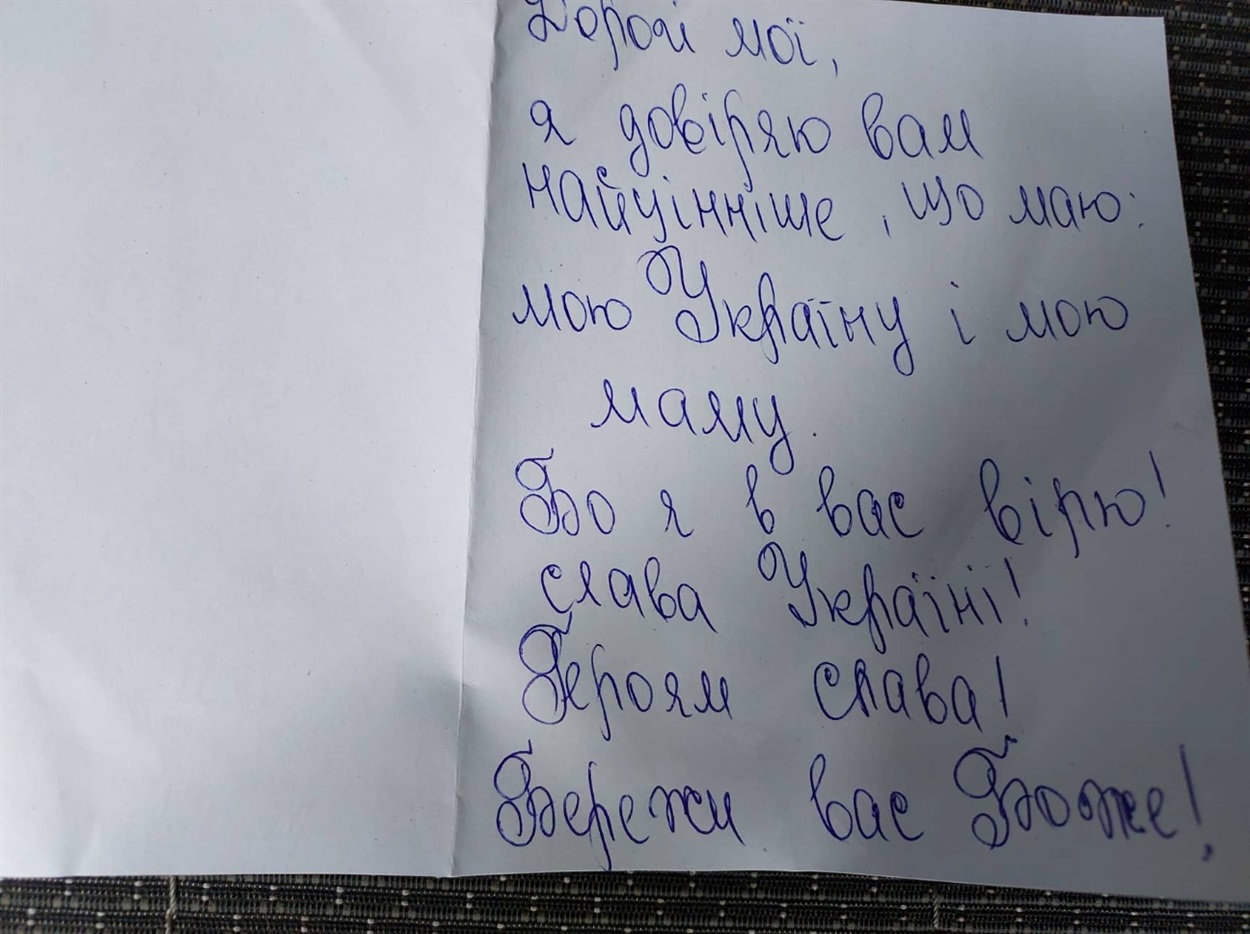 Дорогі мої,
я довіряю вам
найцінніше, що маю:
мою Україну і мою
маму.
Бо я в вас вірю!
слава Україні!
Героям слава!
Бережи вас Боже!